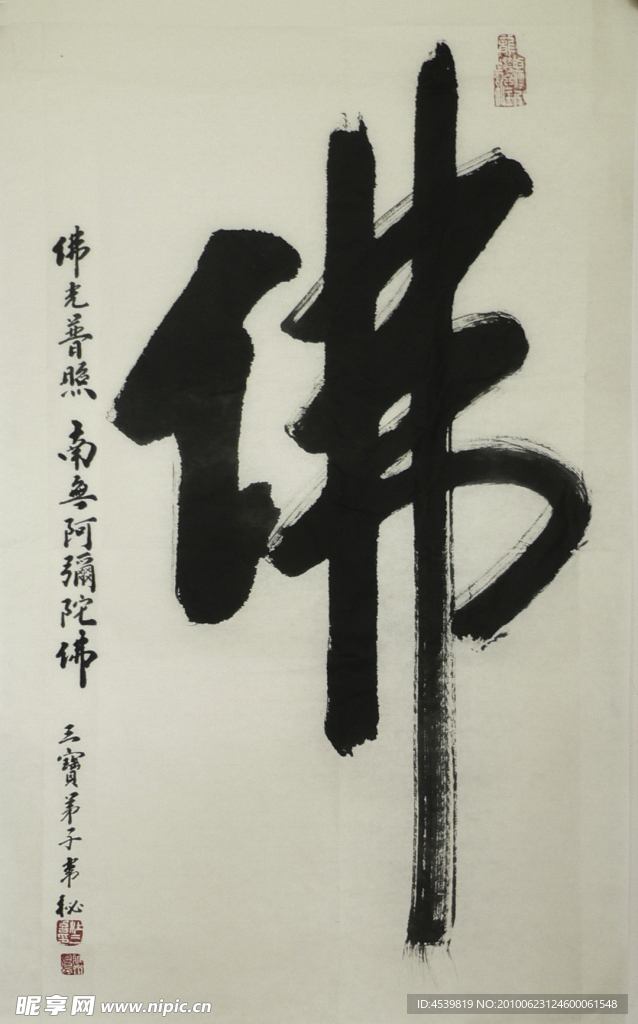 佛
佛光普照 南無阿彌陀佛 三寶弟子韦秘
昵享网 www.nipic.cn
ID:4539819 NO:20100623124600061548